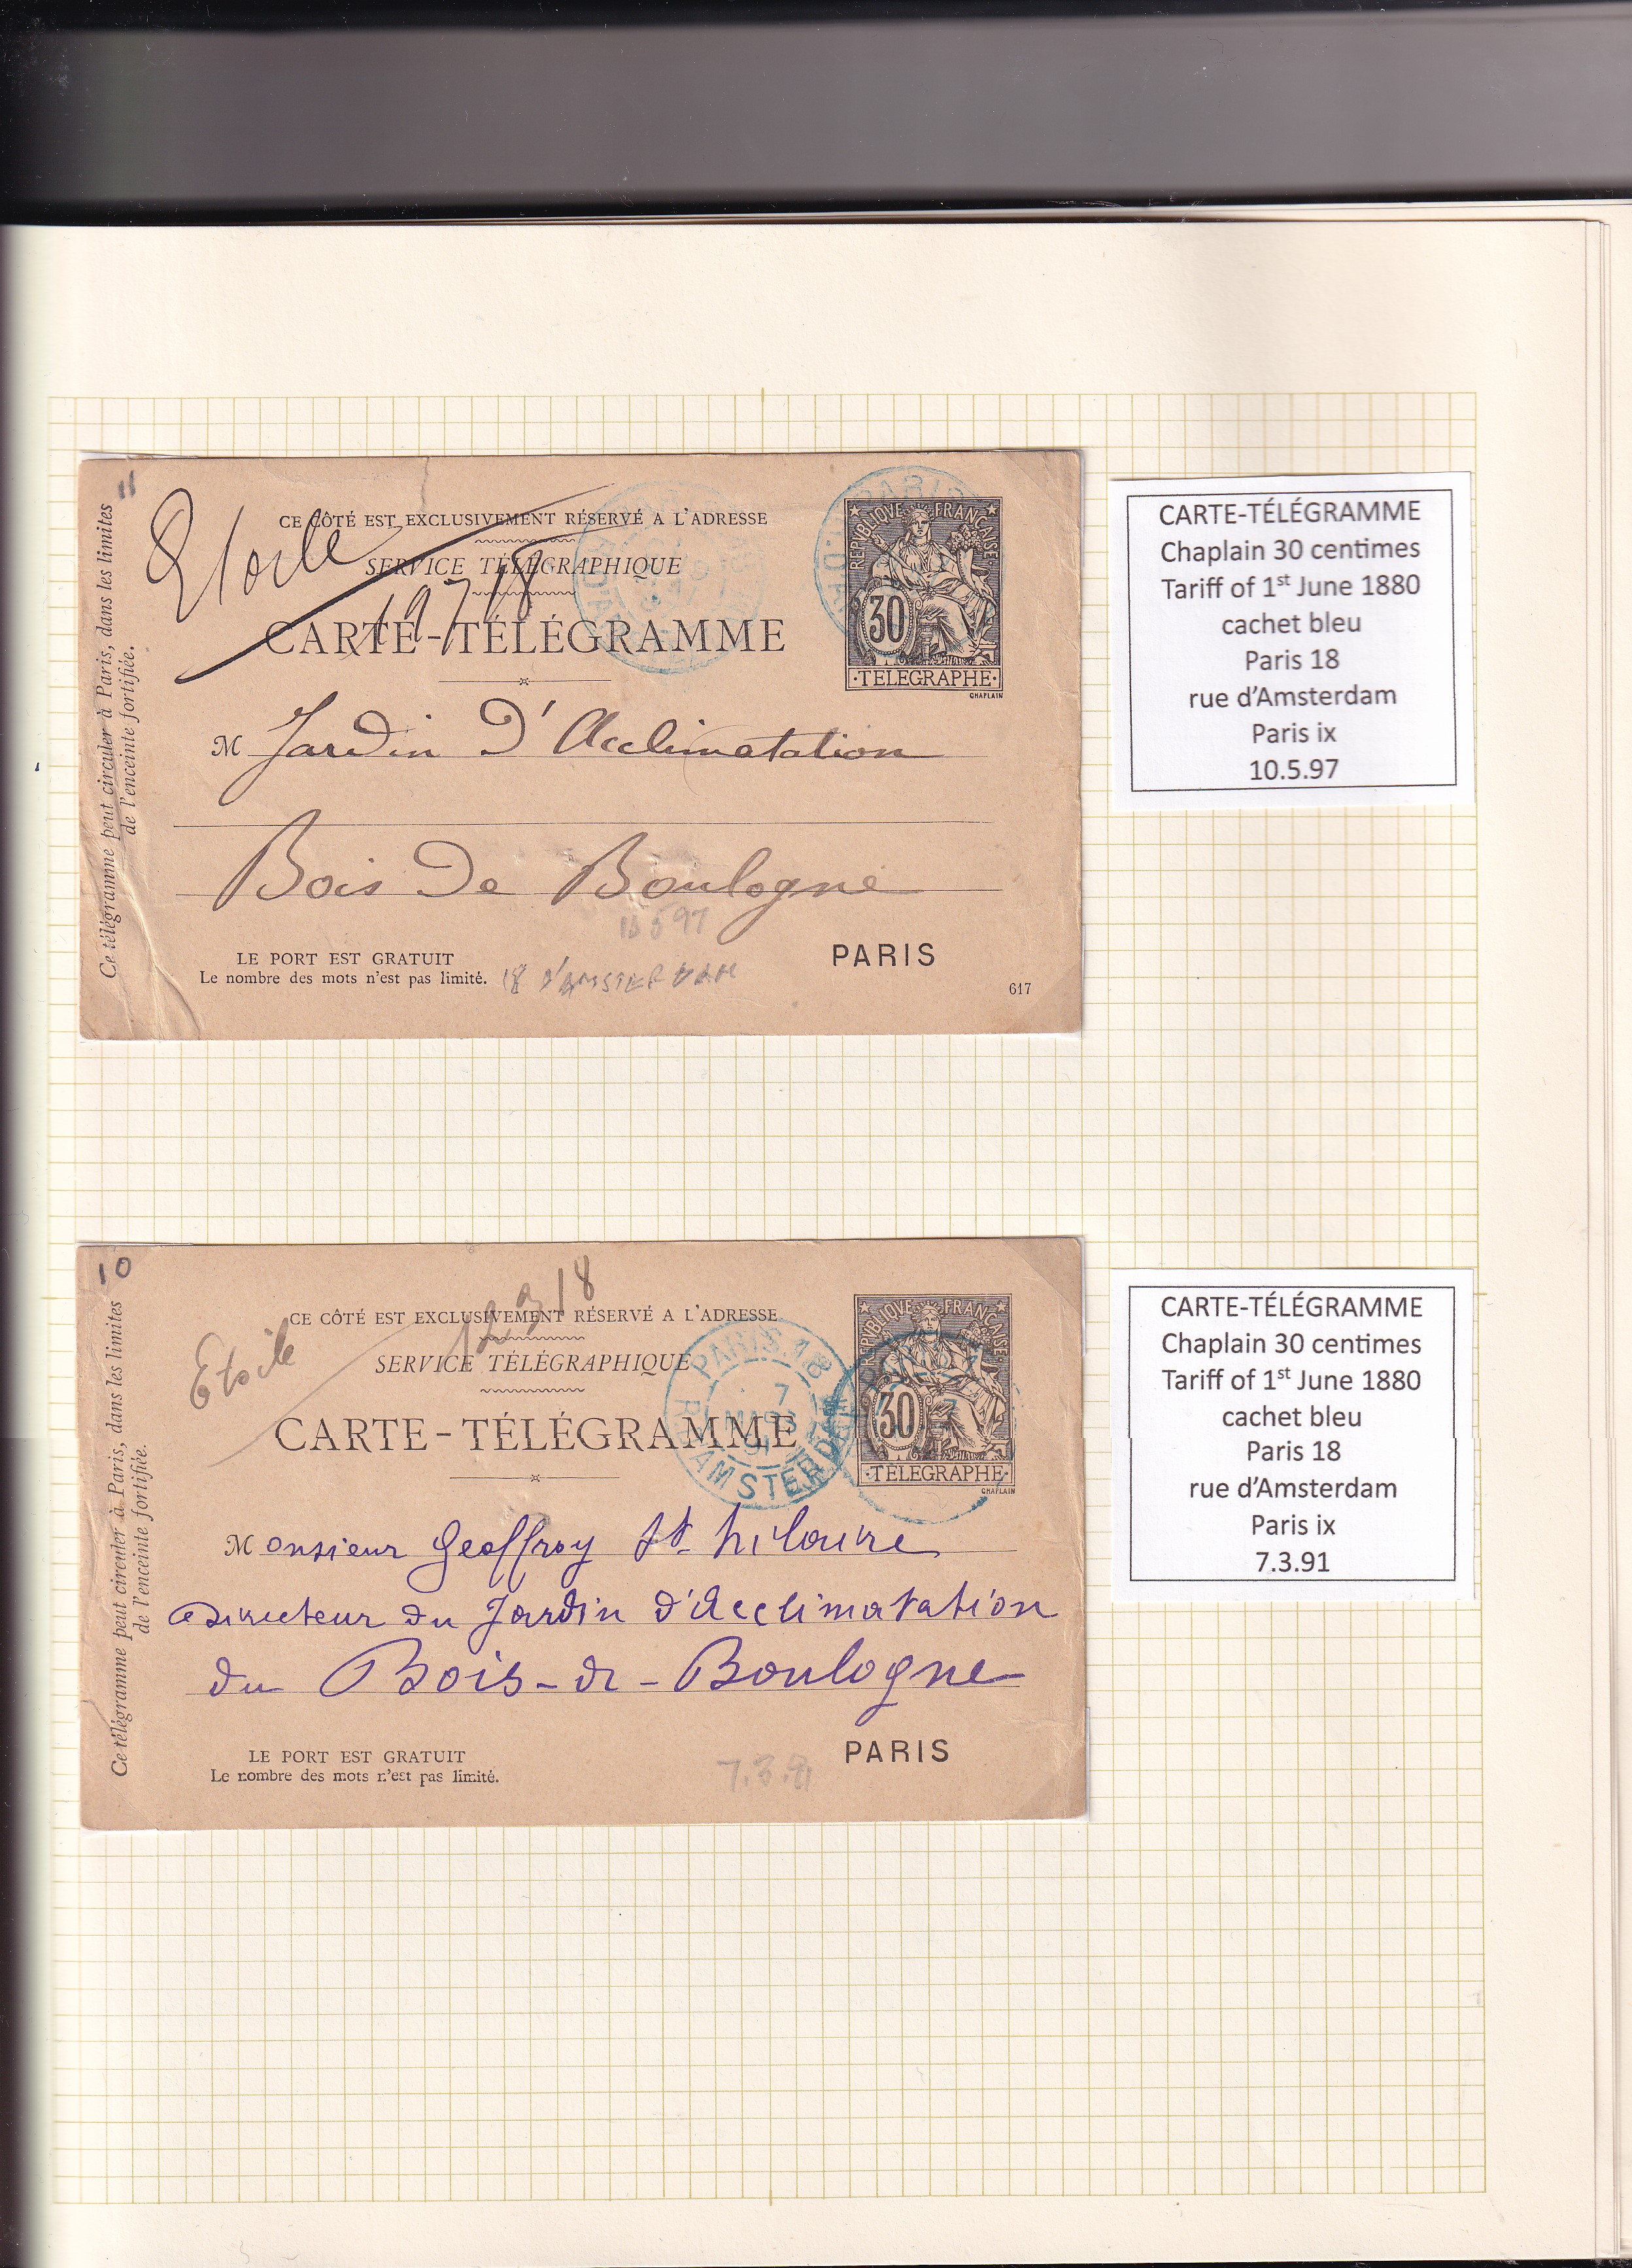 11
Etoile
CE CÔTÉ EST EXCLUSIVEMENT RÉSERVÉ A L'ADRESSE
SERVICE TÉLÉGRAPHIQUE
CARTE-TÉLÉGRAMME
Ce télégramme peut circuler à Paris, dans les limites
de l'enceinte fortifiée.
PARIS
REPUBLIQUE FRANÇAISE
30
TELEGRAPHE
CHAPLAIN
M Jardin D'Acclimatation
Bois De Boulogne
10 5 97
LE PORT EST GRATUIT
Le nombre des mots n'est pas limité.
18 D'AMSTERDAM
PARIS
617
CARTE-TÉLÉGRAMME
Chaplain 30 centimes
Tariff of 1st June 1880
cachet bleu
Paris 18
rue d'Amsterdam
Paris ix
10.5.97
10
Etoile
CE CÔTÉ EST EXCLUSIVEMENT RÉSERVÉ A L'ADRESSE
SERVICE TÉLÉGRAPHIQUE
CARTE-TÉLÉGRAMME
Ce télégramme peut circuler à Paris, dans les limites
de l'enceinte fortifiée.
PARIS.18
7
MARS
91
R. AMSTERDAM
REPUBLIQUE FRANÇAISE
30
TELEGRAPHE
CHAPLAIN
Monsieur Geoffroy St hilaire
Directeur du Jardin d'Acclimatation
du Bois-de-Boulogne
LE PORT EST GRATUIT
Le nombre des mots n'est pas limité.
7.3.91
PARIS
CARTE-TÉLÉGRAMME
Chaplain 30 centimes
Tariff of 1st June 1880
cachet bleu
Paris 18
rue d'Amsterdam
Paris ix
7.3.91